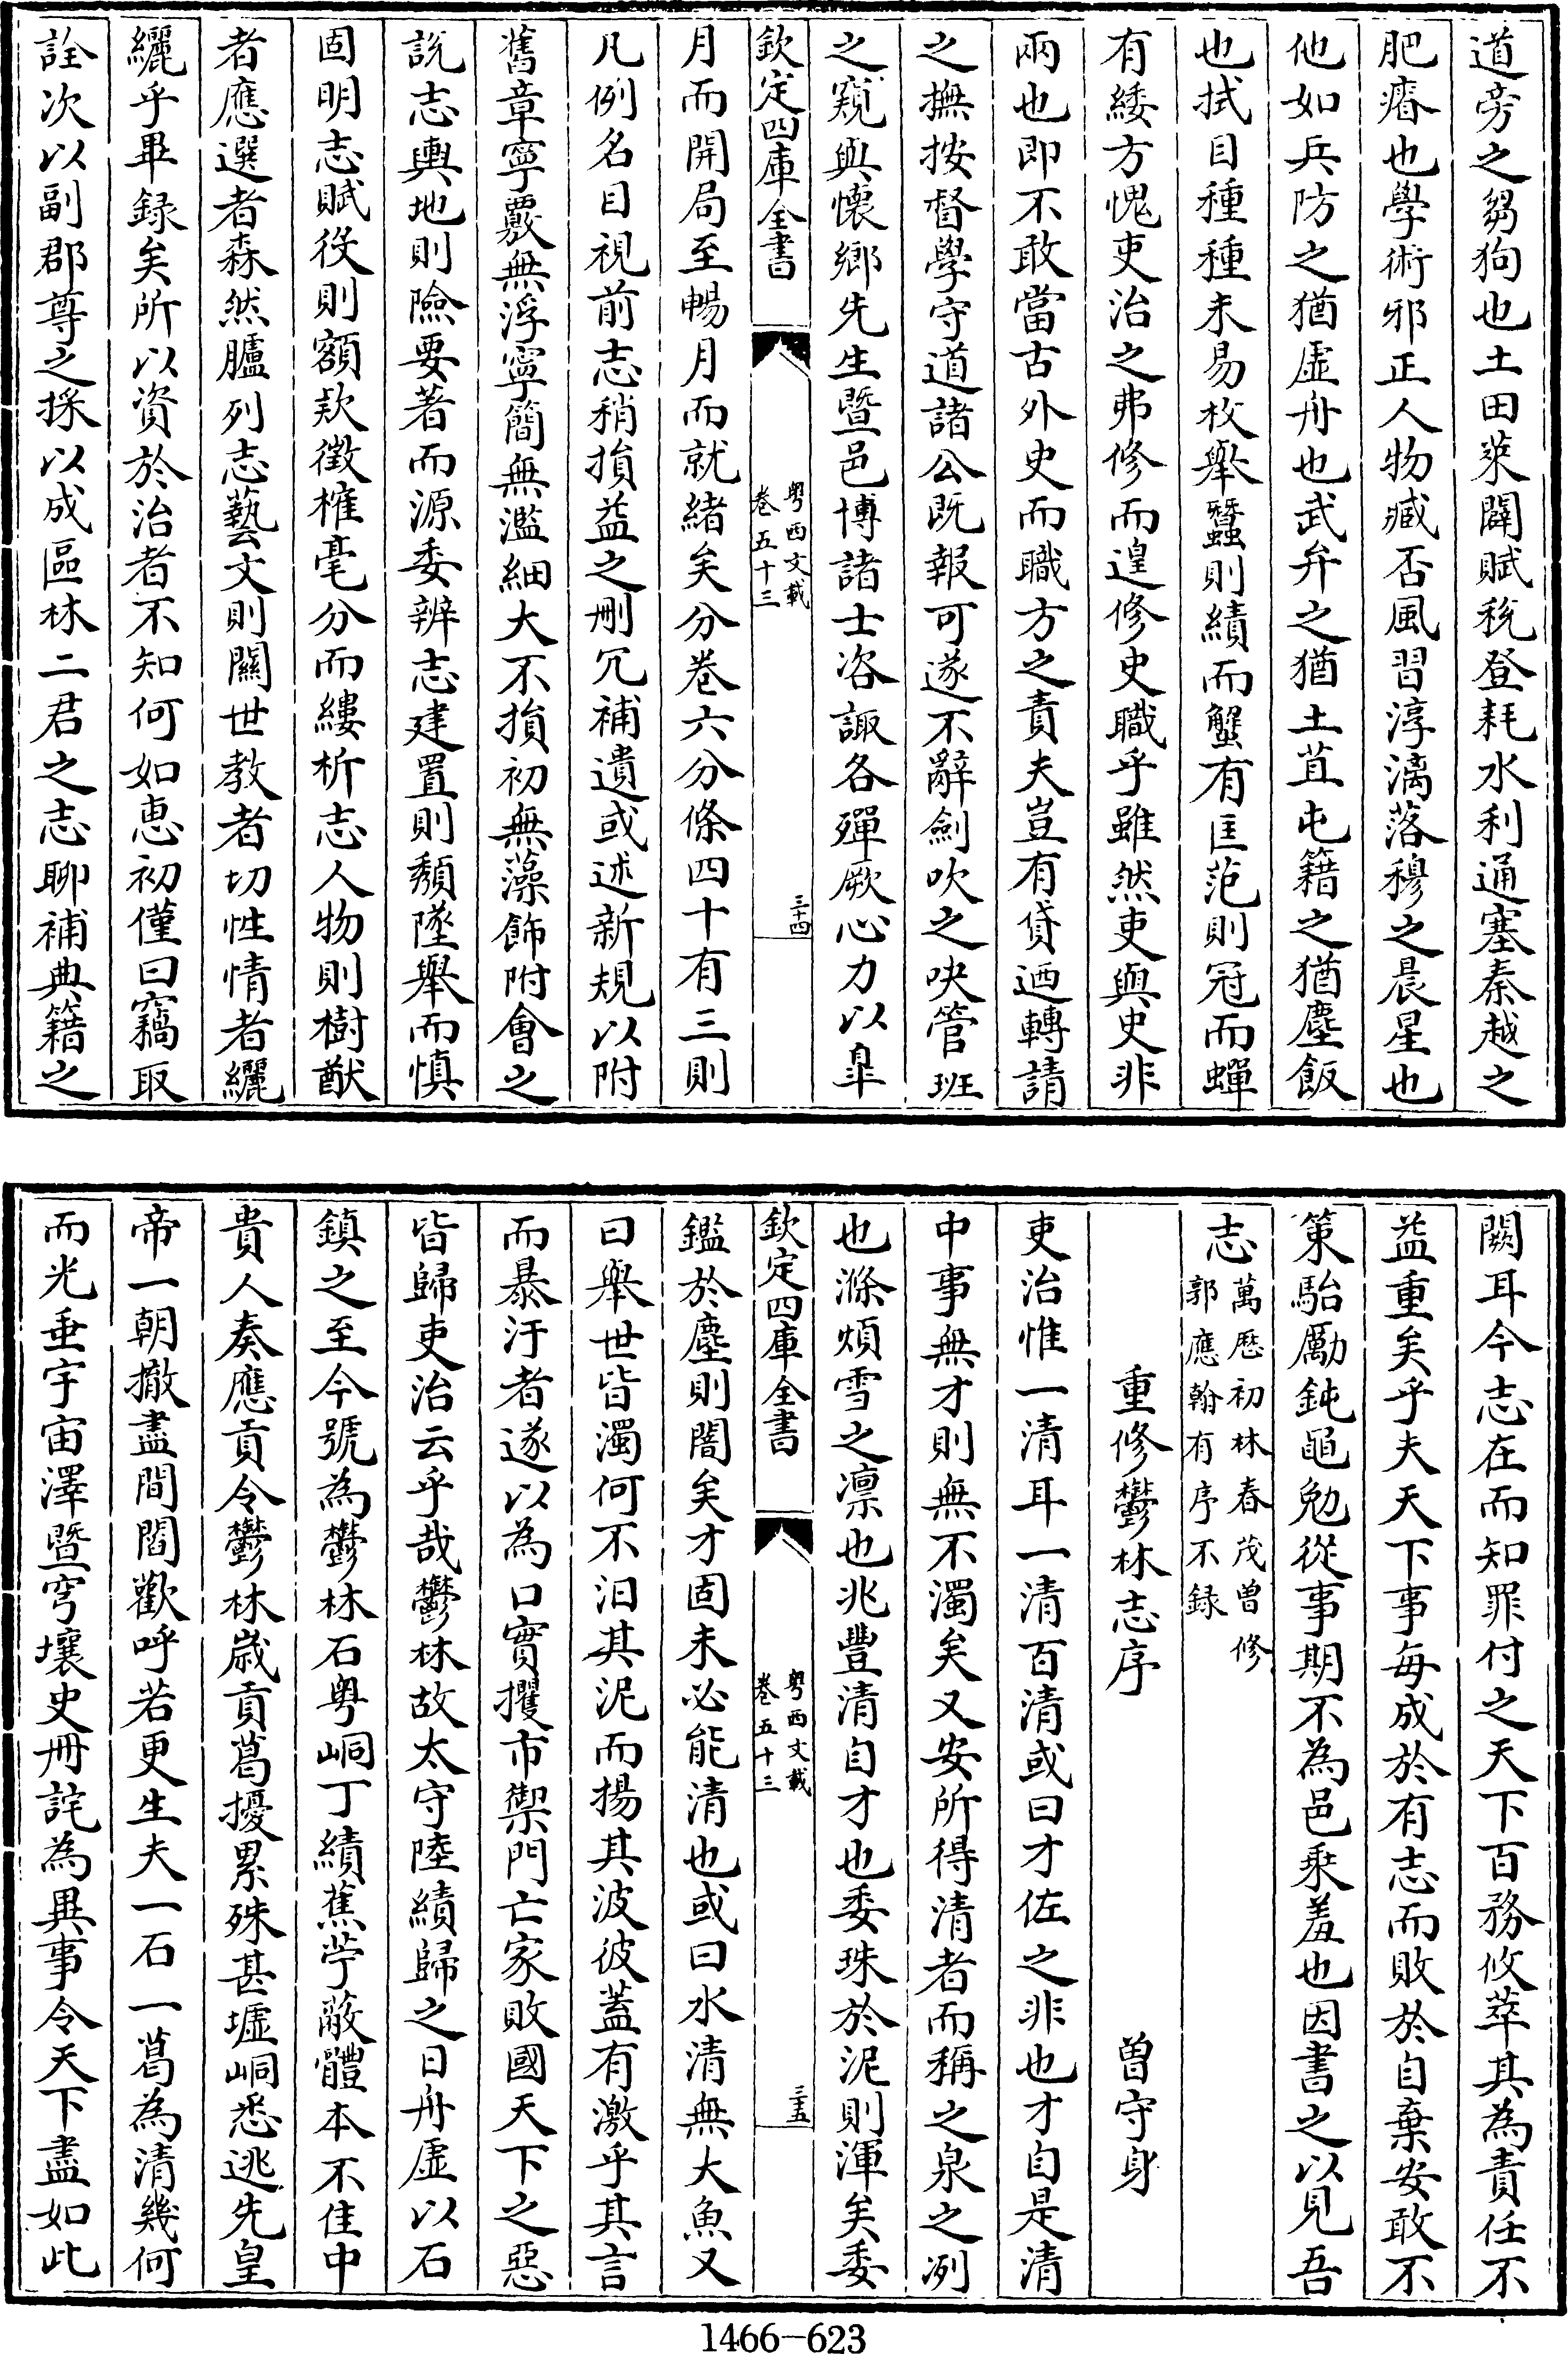 道旁之芻狗也土田萊闢賦税登耗水利通塞秦越之
肥瘠也學術邪正人物臧否風習淳漓落穆之晨星也
他如兵防之猶虚舟也武弁之猶土苴屯籍之猶塵飯
也拭目種種未易枚舉蠶則績而蟹有匡范則冠而蟬
有緌方愧吏治之弗修而遑修史職乎雖然吏與史非
兩也即不敢當古外史而職方之責夫豈有貸迺轉請
之撫按督學守道諸公既報可遂不辭劍吹之吷管班
之窺與懷鄉先生暨邑博諸士咨諏各殫厥心力以臯
欽定四庫全書
粤西文載
卷五十三
三十四
月而開局至暢月而就緒矣分卷六分條四十有三則
凡例名目視前志稍損益之刪冗補遺或述新規以附
舊章寧覈無浮寧簡無濫細大不損初無藻飾附會之
説志輿地則險要著而源委辨志建置則頽墜舉而慎
固明志賦役則額欵徵榷毫分而縷析志人物則樹猷
者應選者森然臚列志藝文則關世教者切性情者纚
纚乎畢録矣所以資於治者不知何如恵初僅曰竊取
詮次以副郡尊之採以成區林二君之志聊補典籍之
闕耳今志在而知罪付之天下百務攸萃其為責任不
益重矣乎夫天下事毎成於有志而敗於自棄安敢不
策駘勵鈍黽勉從事期不為邑乘羞也因書之以見吾
志
萬厯初林春茂曽修
郭應翰有序不録
重修鬱林志序
曽守身
吏治惟一清耳一清百清或曰才佐之非也才自是清
中事無才則無不濁矣又安所得清者而稱之泉之冽
也滌煩雪之凛也兆豐清自才也委珠於泥則渾矣委
欽定四庫全書
粤西文載
卷五十三
三十五
鑑於塵則闇矣才固未必能清也或曰水清無大魚又
曰舉世皆濁何不汩其泥而揚其波彼蓋有激乎其言
而暴汙者遂以為口實攫市禦門亡家敗國天下之惡
皆歸吏治云乎哉鬱林故太守陸績歸之日舟虚以石
鎮之至今號為鬱林石粤峒丁績蕉苧蔽體本不佳中
貴人奏應貢令鬱林歲貢葛擾累殊甚墟峒悉逃先皇
帝一朝撤盡閭閻歡呼若更生夫一石一葛為清幾何
而光垂宇宙澤暨穹壤史冊詫為異事令天下盡如此
1466-623